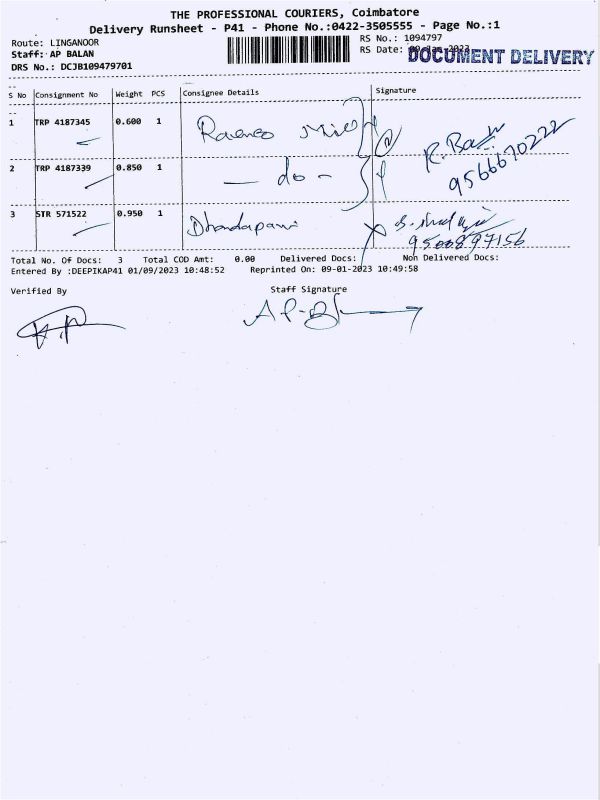 THE PROFESSIONAL COURIERS, Coimbatore
Delivery Runsheet - P41 - Phone No.:0422-3505555 - Page No.:1
Route: LINGANOOR
RS No.: 1094797
Staff: AP BALAN
RS Date: 09-Jan-2023
DOCUMENT DELIVERY
DRS No.: DCJB109479701
S No Consignment No Weight PCS Consignee Details Signature
1 TRP 4187345 0.600 1
2 TRP 4187339 0.850 1 - do -
9566670222
3 STR 571522 0.950 1 Dhandapani
9500897156
Total No. Of Docs: 3 Total COD Amt: 0.00 Delivered Docs: Non Delivered Docs:
Entered By :DEEPIKAP41 01/09/2023 10:48:52 Reprinted On: 09-01-2023 10:49:58
Verified By Staff Signature